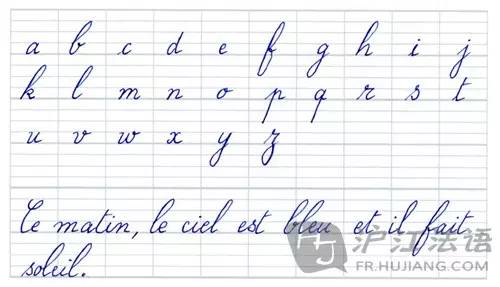 a b c d e f g h i j
k l m n o p q r s t
u v w x y z
Ce matin, le ciel est bleu et il fait
soleil.
沪江法语
FR.HUJIANG.COM